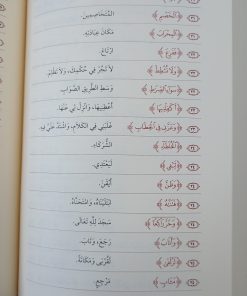 ٢١ ﴿الْخَصْمِ﴾ المُتَخَاصِمِينَ.
٢١ ﴿الْمِحْرَابَ﴾ مَكَانَ عِبَادَتِهِ.
٢٢ ﴿فَفَزِعَ﴾ ارْتَاعَ.
٢٢ ﴿وَلَا تُشْطِطْ﴾ لَا تَجُرْ فِي حُكْمِكَ، وَلَا تَظْلِمْ.
٢٢ ﴿سَوَاءِ الصِّرَاطِ﴾ وَسَطِ الطَّرِيقِ الصَّوَابِ.
٢٣ ﴿أَكْفِلْنِيهَا﴾ أَعْطِنِيهَا، وَانْزِلْ لِي عَنْهَا.
٢٣ ﴿وَعَزَّنِي فِي الْخِطَابِ﴾ غَلَبَنِي فِي الكَلَامِ، وَاشْتَدَّ عَلَيَّ فِيهِ.
٢٤ ﴿الْخُلَطَاءِ﴾ الشُّرَكَاءِ.
٢٤ ﴿لَيَبْغِي﴾ لَيَعْتَدِي.
٢٤ ﴿وَظَنَّ﴾ أَيْقَنَ.
٢٤ ﴿فَتَنَّاهُ﴾ ابْتَلَيْنَاهُ، وَامْتَحَنَّاهُ.
٢٤ ﴿وَخَرَّ رَاكِعًا﴾ سَجَدَ لِلَّهِ تَعَالَى.
٢٤ ﴿وَأَنَابَ﴾ رَجَعَ، وَتَابَ.
٢٥ ﴿لَزُلْفَى﴾ لَقُرْبَى وَمَكَانَةً.
٢٥ ﴿مَآبٍ﴾ مَرْجِعٍ.